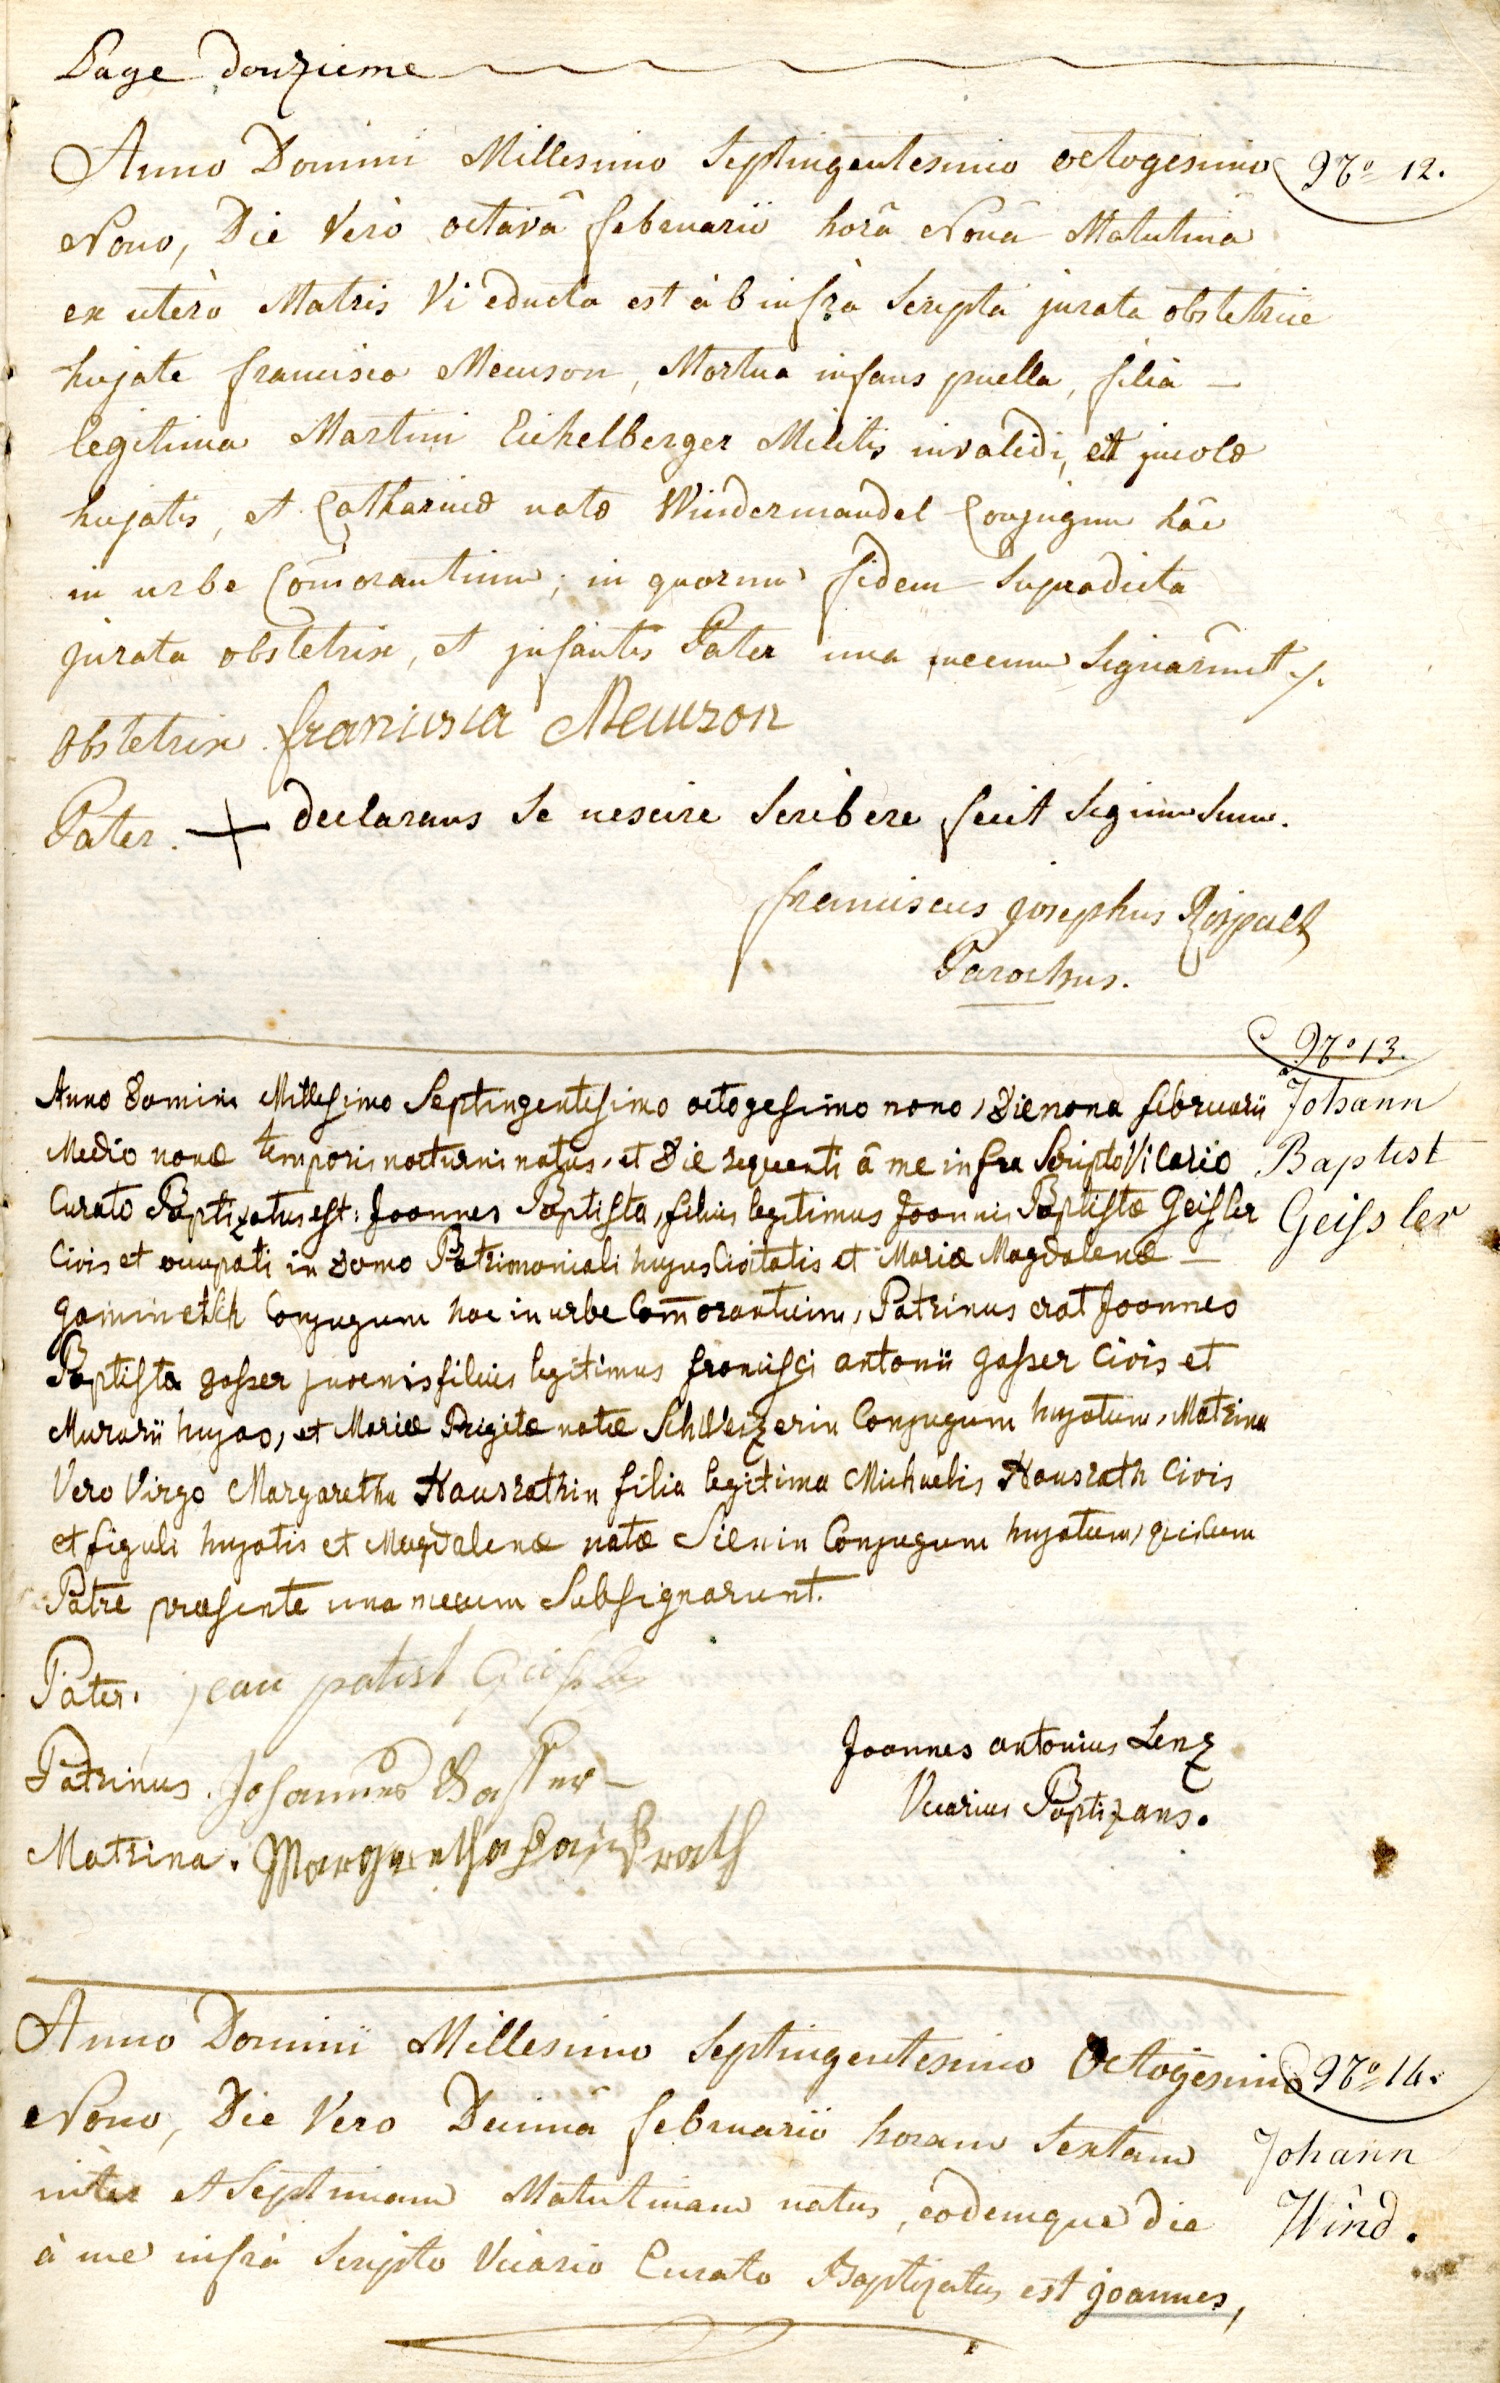 Page douzieme
Anno Domini Millesimo Septingentesimo octogesimo
Nº 12.
Nono, Die Verò octavâ februarii horâ Nonâ Matutinâ
ex uterò Matris Vi educta est àb infrà Scriptâ jurata obstetrice
hujate francisca Meuson, Mortua infans puella, filia —
legitima Martini Eichelberger Militis invalidi, et jncolæ
hujatis, et Catharinæ natæ Windermandel Conjugum hâc
in urbe Com̄orantium; in quorum fidem Supradicta
jurata obstetrix, et jnfantis Pater una mecum Signarûnt ./.
Obstetrix francisca Meuson
Pater. + declarans Se nescire Scribere fecit Signum Suum.
franciscus josephus
Parochus.
Nº 13.
Anno Domini Millesimo Septingentesimo octogesimo nono, Die nona februarii
Johann
Medio nonæ temporis nocturni natus, et Die sequenti â me infra Scripto Vicario
Baptist
Curato Baptizatus est: Joannes Baptista, filius legitimus Joannis Baptistæ Geissler
Geissler
Civis et occupati in Domo Patrimoniali hujus Civitatis et Mariæ Magdalenæ —
Conjugum hac in urbe Com̄orantium, Patrinus erat Joannes
Baptista gasser juvenis filius legitimus francisci antonii gasser Civis et
Murarii hujas, et Mariæ Brigitæ natæ Schweizerin Conjugum hujatum, Matrina
Vero Virgo Margaretha Hausrathin filia legitima Michaelis Hausrath Civis
et figuli hujatis et Magdalenæ natæ Conjugum hujatum, qui Cum
Patre præsente una mecum Subsignarunt.
Pater. jean patist Geissler
Patrinus. Johannes Gasser
Joannes antonius Lenz
Vicarius Baptizans.
Matrina. Margaretha Haußrath
Anno Domini Millesimo Septingentesimo Octogesimo
Nº 14.
Nono, Die Vero Decimâ februarii horam Sextam
Johann
inter et Septimam Matutinam natus, eodemque die
Wind.
à me infrà Scripto Vicario Curato Baptizatus est joannes,